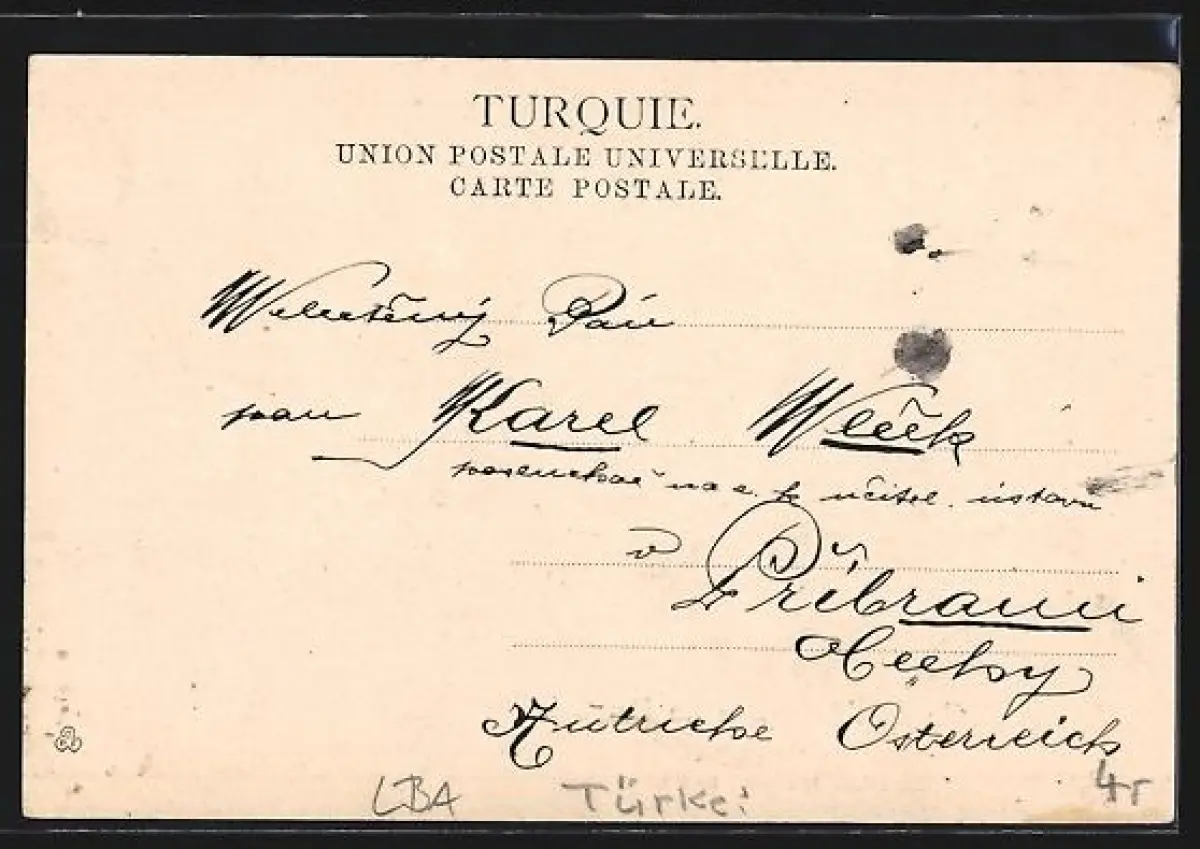 TURQUIE.
UNION POSTALE UNIVERSELLE.
CARTE POSTALE.
Welectěný Pán
pan Karel Wlček
posluchač na c. k. učitel. ústavu
v Příbrami
Čechy
Autriche Österreich
LBA Türkei 4r